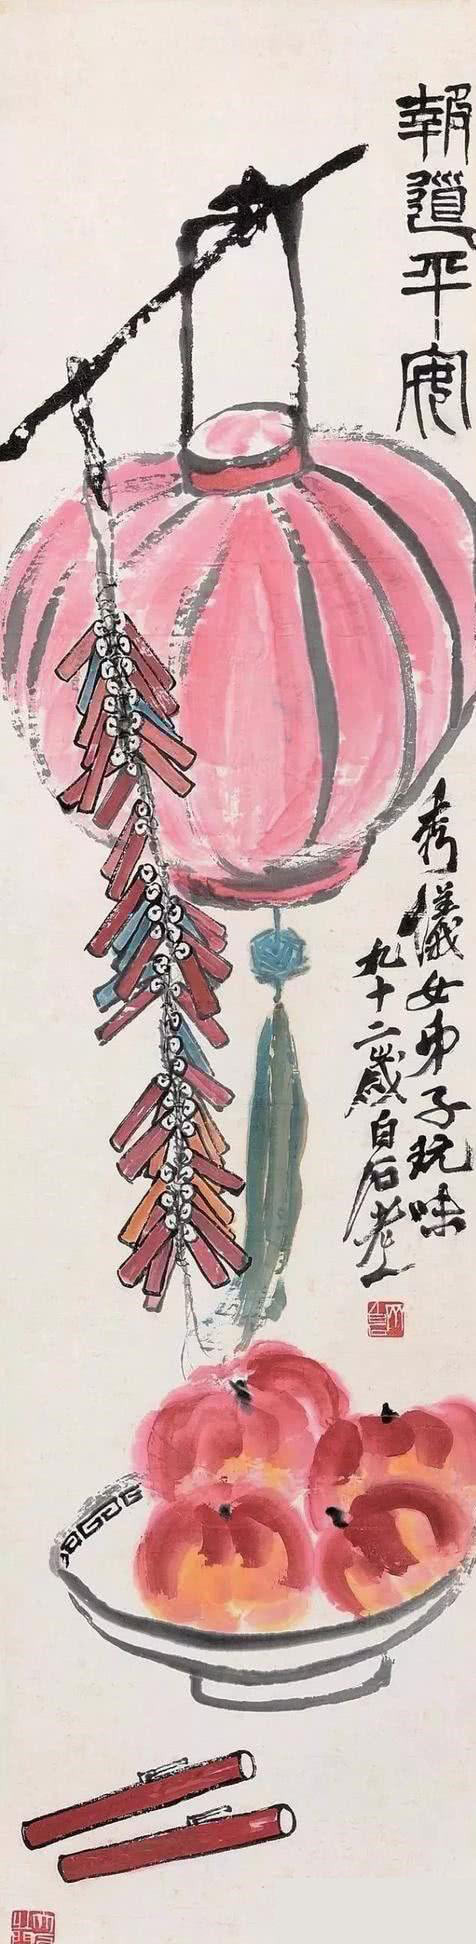 報道平安
秀儀女弟子玩味
九十二歲白石老人